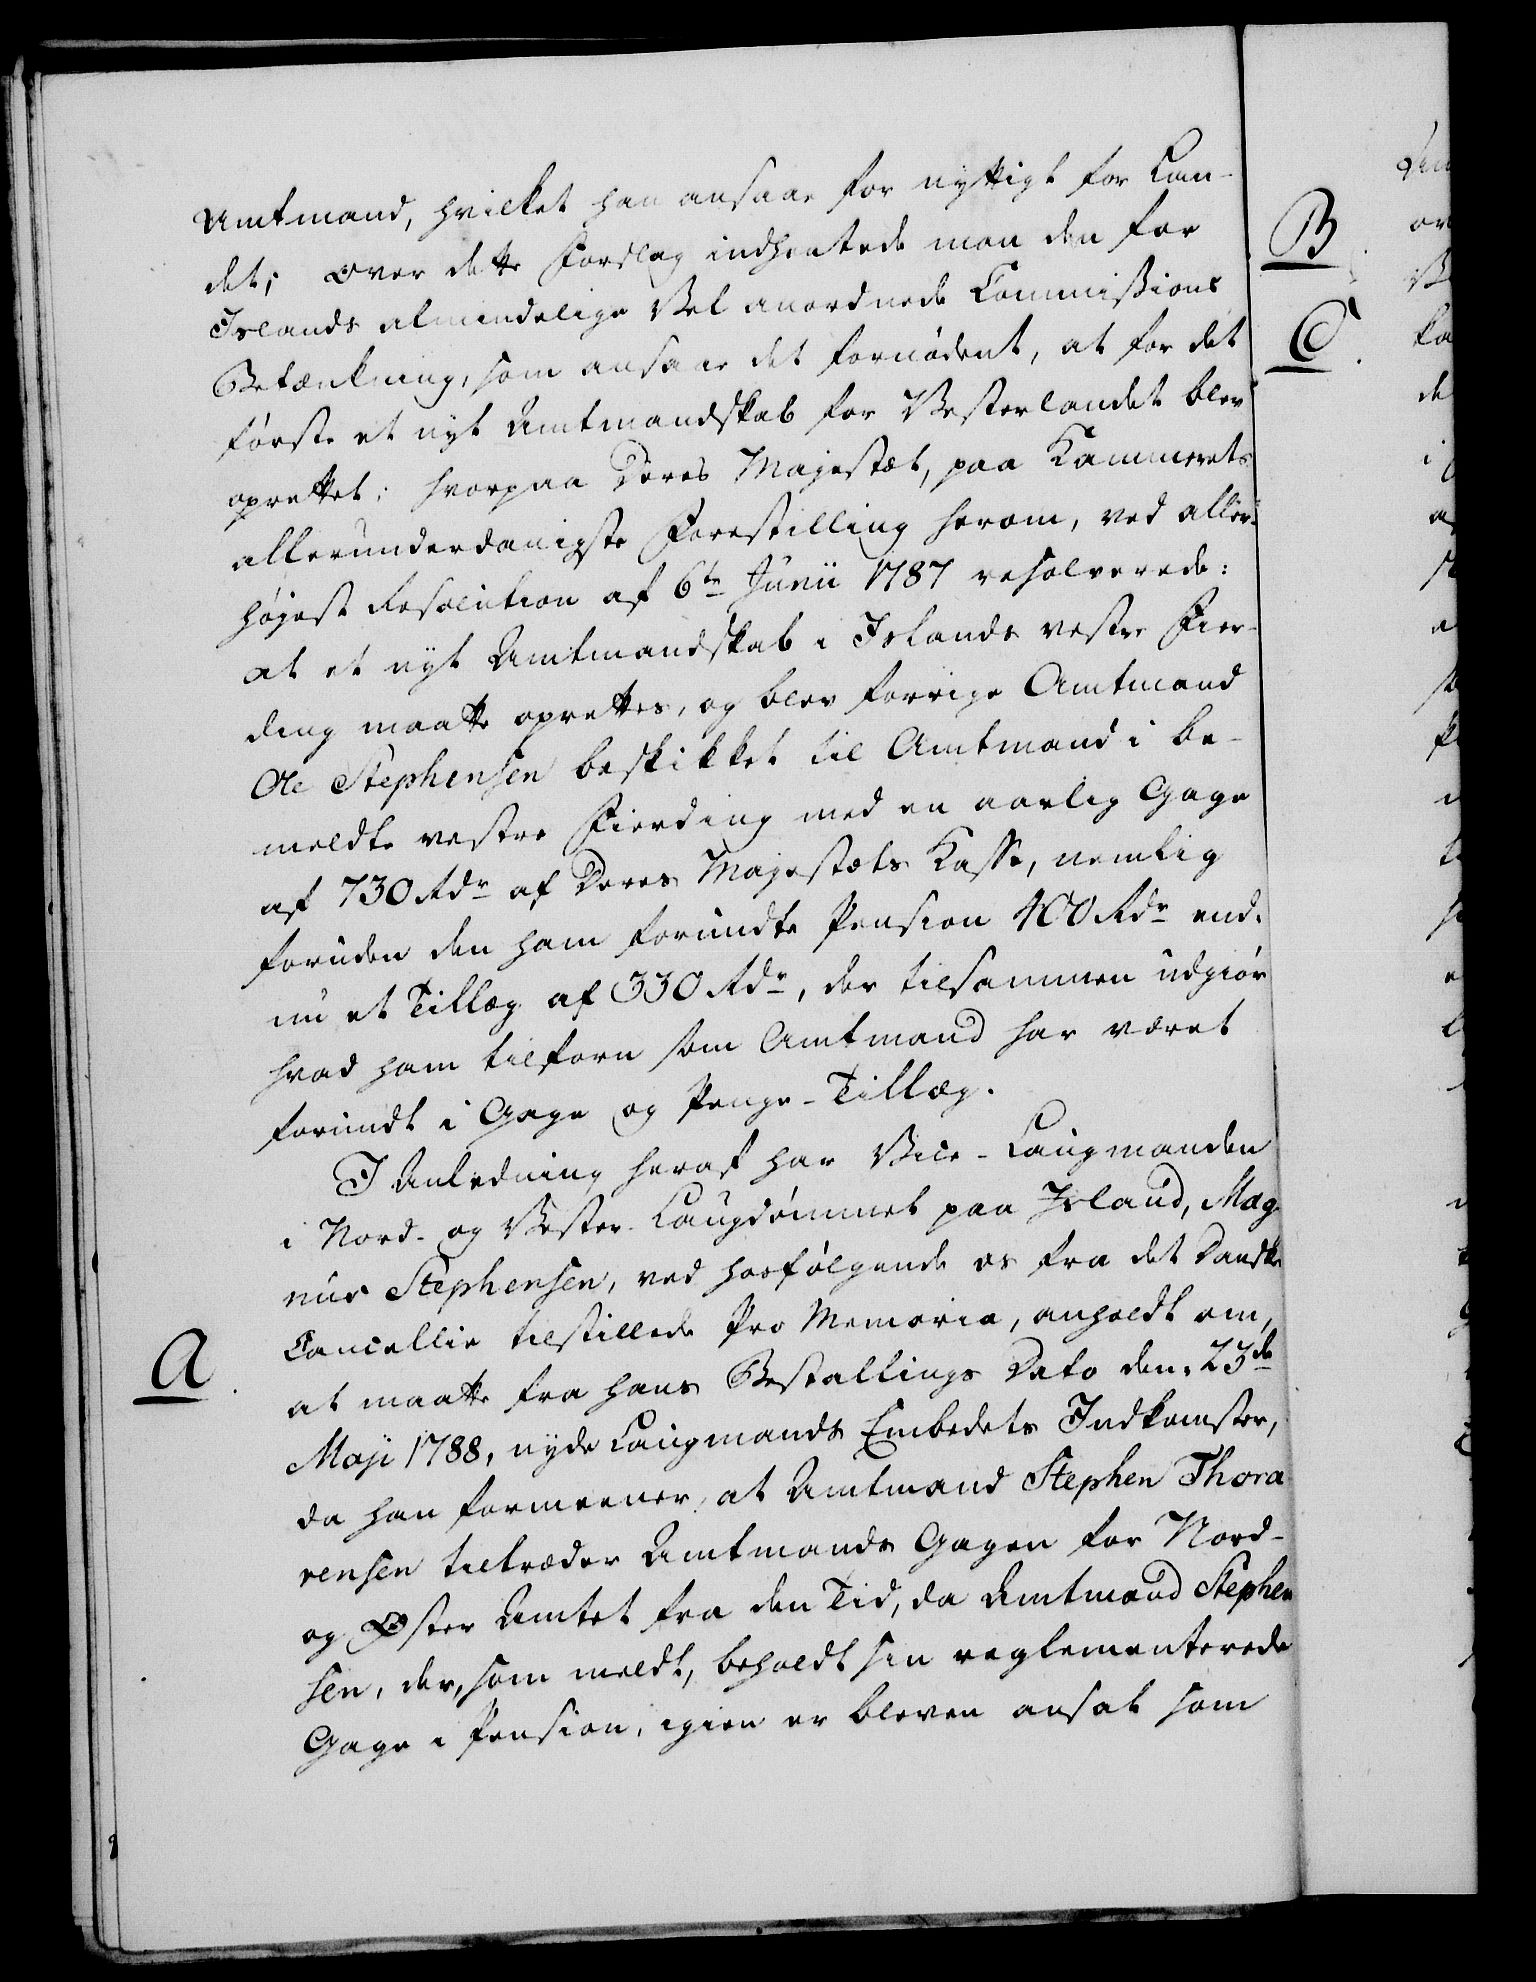 Amtmand, hvilket han ansaae for nyttigt for Lan-
det; Over dette Forslag indhentede man den for
Islands almindelige Vel anordnede Commissions
Betænkning, som ansaae det fornødent, at for det
første et nyt Amtmandskab for Vesterlandet blev
oprettet; hvorpaa Deres Majestæt, paa Kammerets
allerunderdanigste Forestilling herom, ved aller-
højest Resolution af 6te Junii 1787 resolverede:
at et nyt Amtmandskab i Islands vestre Fier-
ding maatte oprettes, og blev forrige Amtmand
Ole Stephensen beskikket til Amtmand i be-
meldte vestre Fierding med en aarlig Gage
af 730 Rdr af Deres Majestæts Kasse, nemlig
foruden den ham forundte Pension 400 Rdr end-
nu et Tillæg af 330 Rdr, der tilsammen udgiør
hvad ham tilforn som Amtmand har været
forundt i Gage og Penge-Tillæg.
I Anledning heraf har Vice-Laugmanden
i Nord- og Vester-Laugdømmet paa Island, Mag-
nus Stephensen, ved hosfølgende os fra det Danske
A. Cancellie tilstillede Pro Memoria, anholdt om,
at maatte fra hans Bestallings Dato den 23de
Maji 1788, nyde Laugmands Embedets Indkomster,
da han formeener, at Amtmand Stephen Thora-
rensen tiltræder Amtmands Gagen for Nord-
og Øster Amtet fra den Tid, da Amtmand Stephen-
sen, der, som meldt, beholdt sin reglementerede
Gage i Pension, igien er bleven ansat som
B
C.